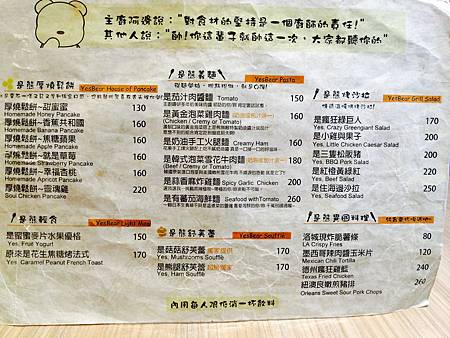 主廚阿邊說："對食材的堅持是一個廚師的責任！"
其他人說："帥！你這輩子就帥這一次，大家都聽你的"
是熊厚燒鬆餅
YesBear House of Pancake
厚燒鬆餅~甜蜜蜜 130
Homemade Honey Pancake
厚燒鬆餅~香蕉共和國 160
Homemade Banana Pancake
厚燒鬆餅~焦糖蘋果 160
Homemade Apple Pancake
厚燒鬆餅~就是草莓 160
Homemade Strawberry Pancake
厚燒鬆餅~幸福杏桃 160
Homemade Apricot Pancake
厚燒鬆餅~靈魂雞 220
Soul Chicken Pancake
是熊輕食
YesBear Light Meal
是蜜蜜麥片水果優格 150
Yes. Fruit Yogurt
原來是花生焦糖烤法式 170
Yes. Caramel Peanut French Toast
是熊義麵
YesBear Pasta
是茄汁肉醬麵 Tomato 150
是黃金泡菜雞肉麵
Chicken ( Cremy or Tomato) 160
是奶油手工火腿麵 Creamy Ham 160
是韓式泡菜雪花牛肉麵
Beef (Cremy or Tomato) 180
是蒜香麻炸雞麵 Spicy Garlic Chicken 200
是有蕃茄海鮮麵 Seafood with Tomato 200
是熊舒芙蕾
YesBear Soufflé
是菇菇舒芙蕾 獨家提供 170
Yes, Mushrooms Soufflé
是熊腿舒芙蕾 170
Yes, Ham Soufflé
是熊燒沙拉
YesBear Grill Salad
是瘋狂綠巨人 150
Yes. Crazy Greengiant Salad
是小雞與果子 200
Yes. Little Chicken Caesar Salad
是三隻松阪豬 200
Yes. BBQ Pork Salad
是紅橙黃綠紅 200
Yes. Beef Salad
是住海邊沙拉 250
Yes. Seafood Salad
是熊異國料理
洛城現炸脆薯條 80
LA Crispy Fries
墨西哥辣肉醬玉米片 120
Mexican Chili Tortilla
德州瘋狂雞籃 240
Texas Fried Chicken
紐澳良嫩煎豬排 260
Orleans Sweet Sour Pork Chops
內用每人限低消一杯飲料